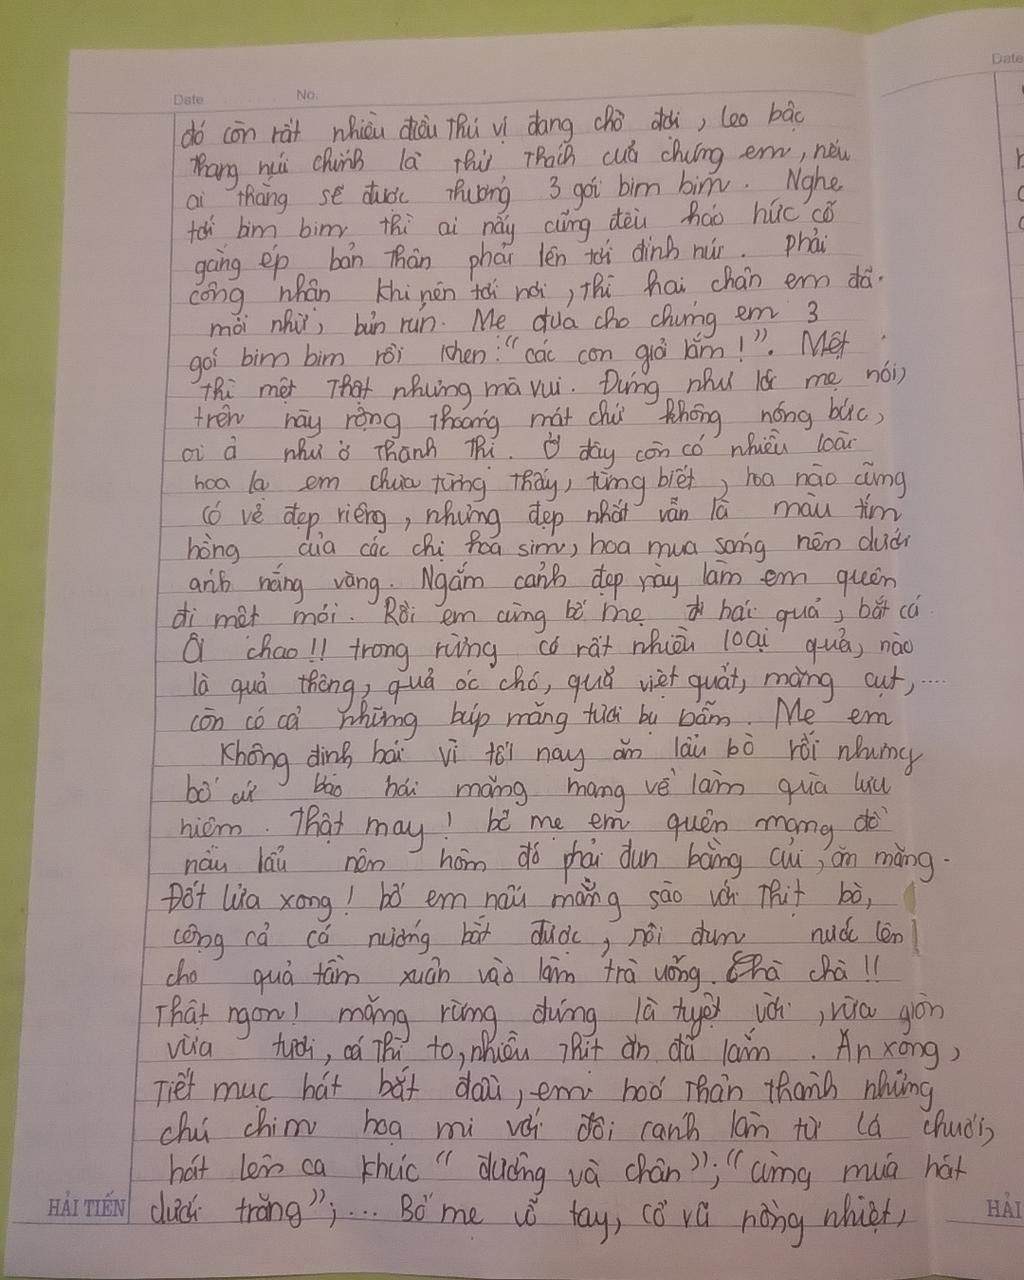 Date No.
Date
đó còn rất nhiều điều thú vị đang chờ đợi, leo bậc
thang núi chính là thử thách của chúng em, nếu
ai thắng sẽ được thưởng 3 gói bim bim. Nghe
tới bim bim thì ai nấy cũng đều háo hức cố
gắng ép bản thân phải lên tới đỉnh núi. phải
công nhân khi nên tới nơi, thì hai chân em đã
mỏi nhừ, bủn rủn. Mẹ đưa cho chúng em 3
gói bim bim rồi khen: "các con giỏi lắm!". Mệt
thì mệt thật nhưng mà vui. Đúng như lời mẹ nói,
trên này rộng thoáng mát chứ không nóng bức,
oi ả như ở thành thị. Ở đây còn có nhiều loài
hoa lạ em chưa từng thấy, từng biết, hoa nào cũng
có vẻ đẹp riêng, nhưng đẹp nhất vẫn là màu tím
hồng của các chị hoa sim, hoa mua sáng nên dưới
ánh nắng vàng. Ngắm cảnh đẹp này làm em quên
đi mệt mỏi. Rồi em cùng bố mẹ đi hái quả, bắt cá
Ôi chao!! trong rừng có rất nhiều loại quả, nào
là quả thông, quả óc chó, quả việt quất, măng cụt,....
còn có cả những búp măng tươi bụ bẫm. Mẹ em
không định hái vì tối nay ăn lẩu bò rồi nhưng
bố cứ bảo hái măng mang về làm quà lưu
niệm. Thật may! bố mẹ em quên mang đồ
nấu lẩu nên hôm đó phải đun bằng củi, ăn măng.
Đốt lửa xong! bố em nấu măng sào với thịt bò,
cộng cả cá nướng bắt được, rồi đun nước lên
cho quả tầm xuân vào làm trà uống. Chà chà!!
Thật ngon! măng rừng đúng là tuyệt vời, vừa giòn
vừa tươi, cá thì to, nhiều thịt ăn đã lắm. Ăn xong,
Tiết mục hát bắt đầu, em hoá thân thành những
chú chim hoạ mi với đôi cánh làm từ lá chuối,
hát lên ca khúc "đường và chân"; "cùng múa hát
dưới trăng";... Bố mẹ vỗ tay, cổ vũ nồng nhiệt,
HẢI TIẾN
HẢI